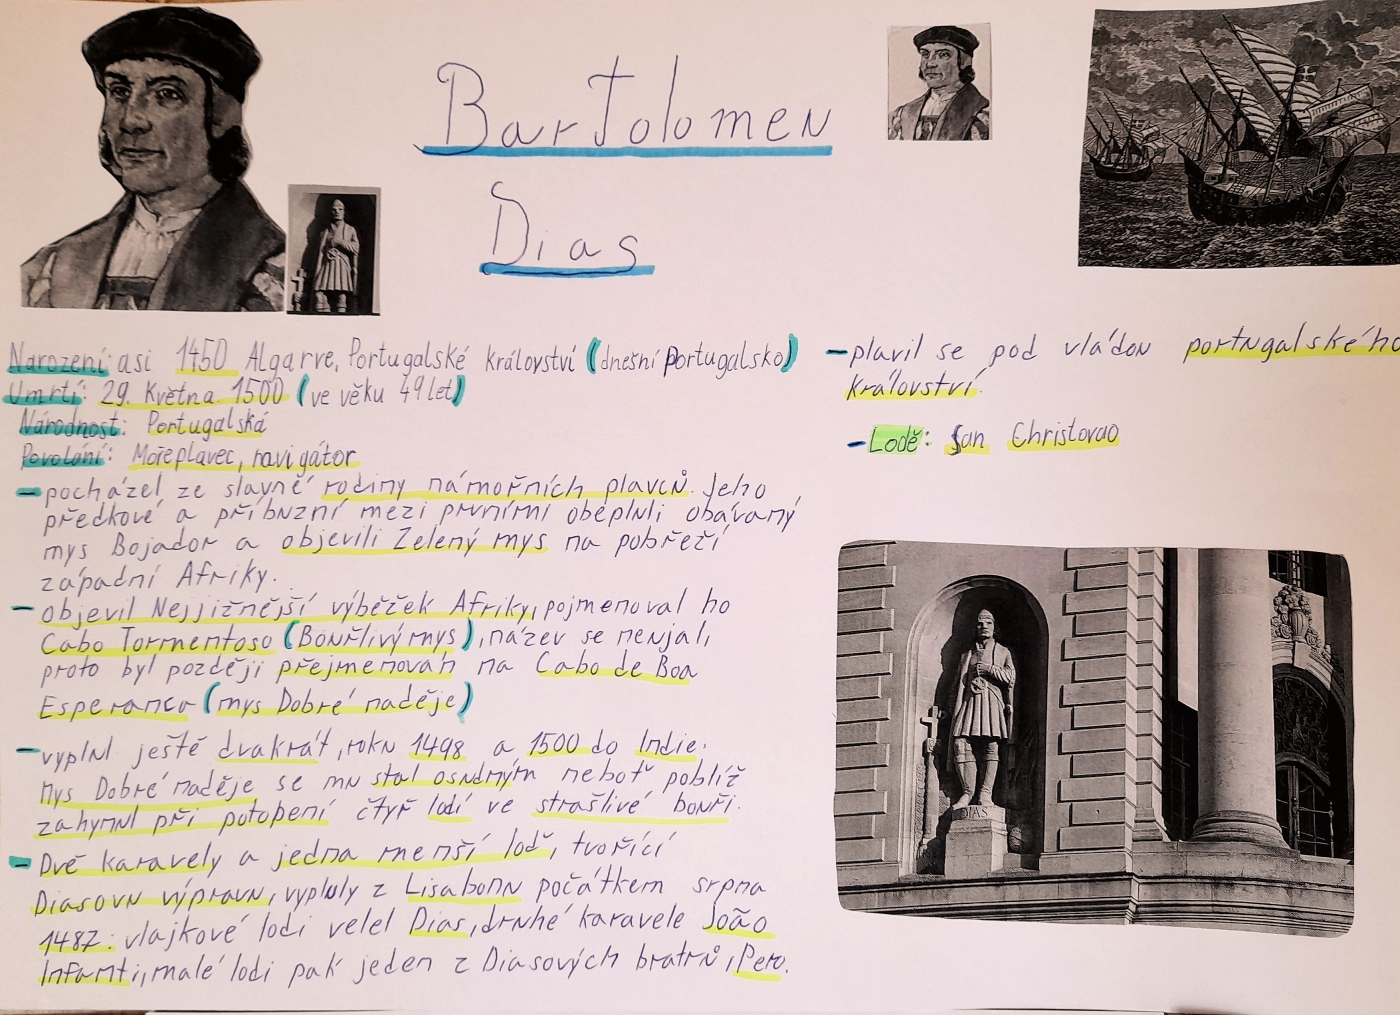 Bartolomeu
Dias
Narození: asi 1450 Algarve, Portugalské království (dnešní portugalsko)
Úmrtí: 29. Května 1500 (ve věku 49 let)
Národnost: Portugalská
Povolání: Mořeplavec, navigátor
- pocházel ze slavné rodiny námořních plavců. Jeho
předkové a příbuzní mezi prvními obepluli obávaný
mys Bojador a objevili Zelený mys na pobřeží
západní Afriky.
- objevil Nejjižnější výběžek Afriky, pojmenoval ho
Cabo Tormentoso (Bouřlivý mys), název se neujal,
proto byl později přejmenován na Cabo de Boa
Esperanca (mys Dobré naděje)
- vyplul ještě dvakrát, roku 1498 a 1500 do Indie.
Mys Dobré naděje se mu stal osudným neboť poblíž
zahynul při potopení čtyř lodí ve strašlivé bouři.
- Dvě karavely a jedna menší loď, tvořící
Diasovu výpravu, vypluly z Lisabonu počátkem srpna
1487: vlajkové lodi velel Dias, druhé karavele João
Infanti, malé lodi pak jeden z Diasových bratrů, Pero.
- plavil se pod vládou portugalského
království.
- Lodě: San Christovao
DIAS